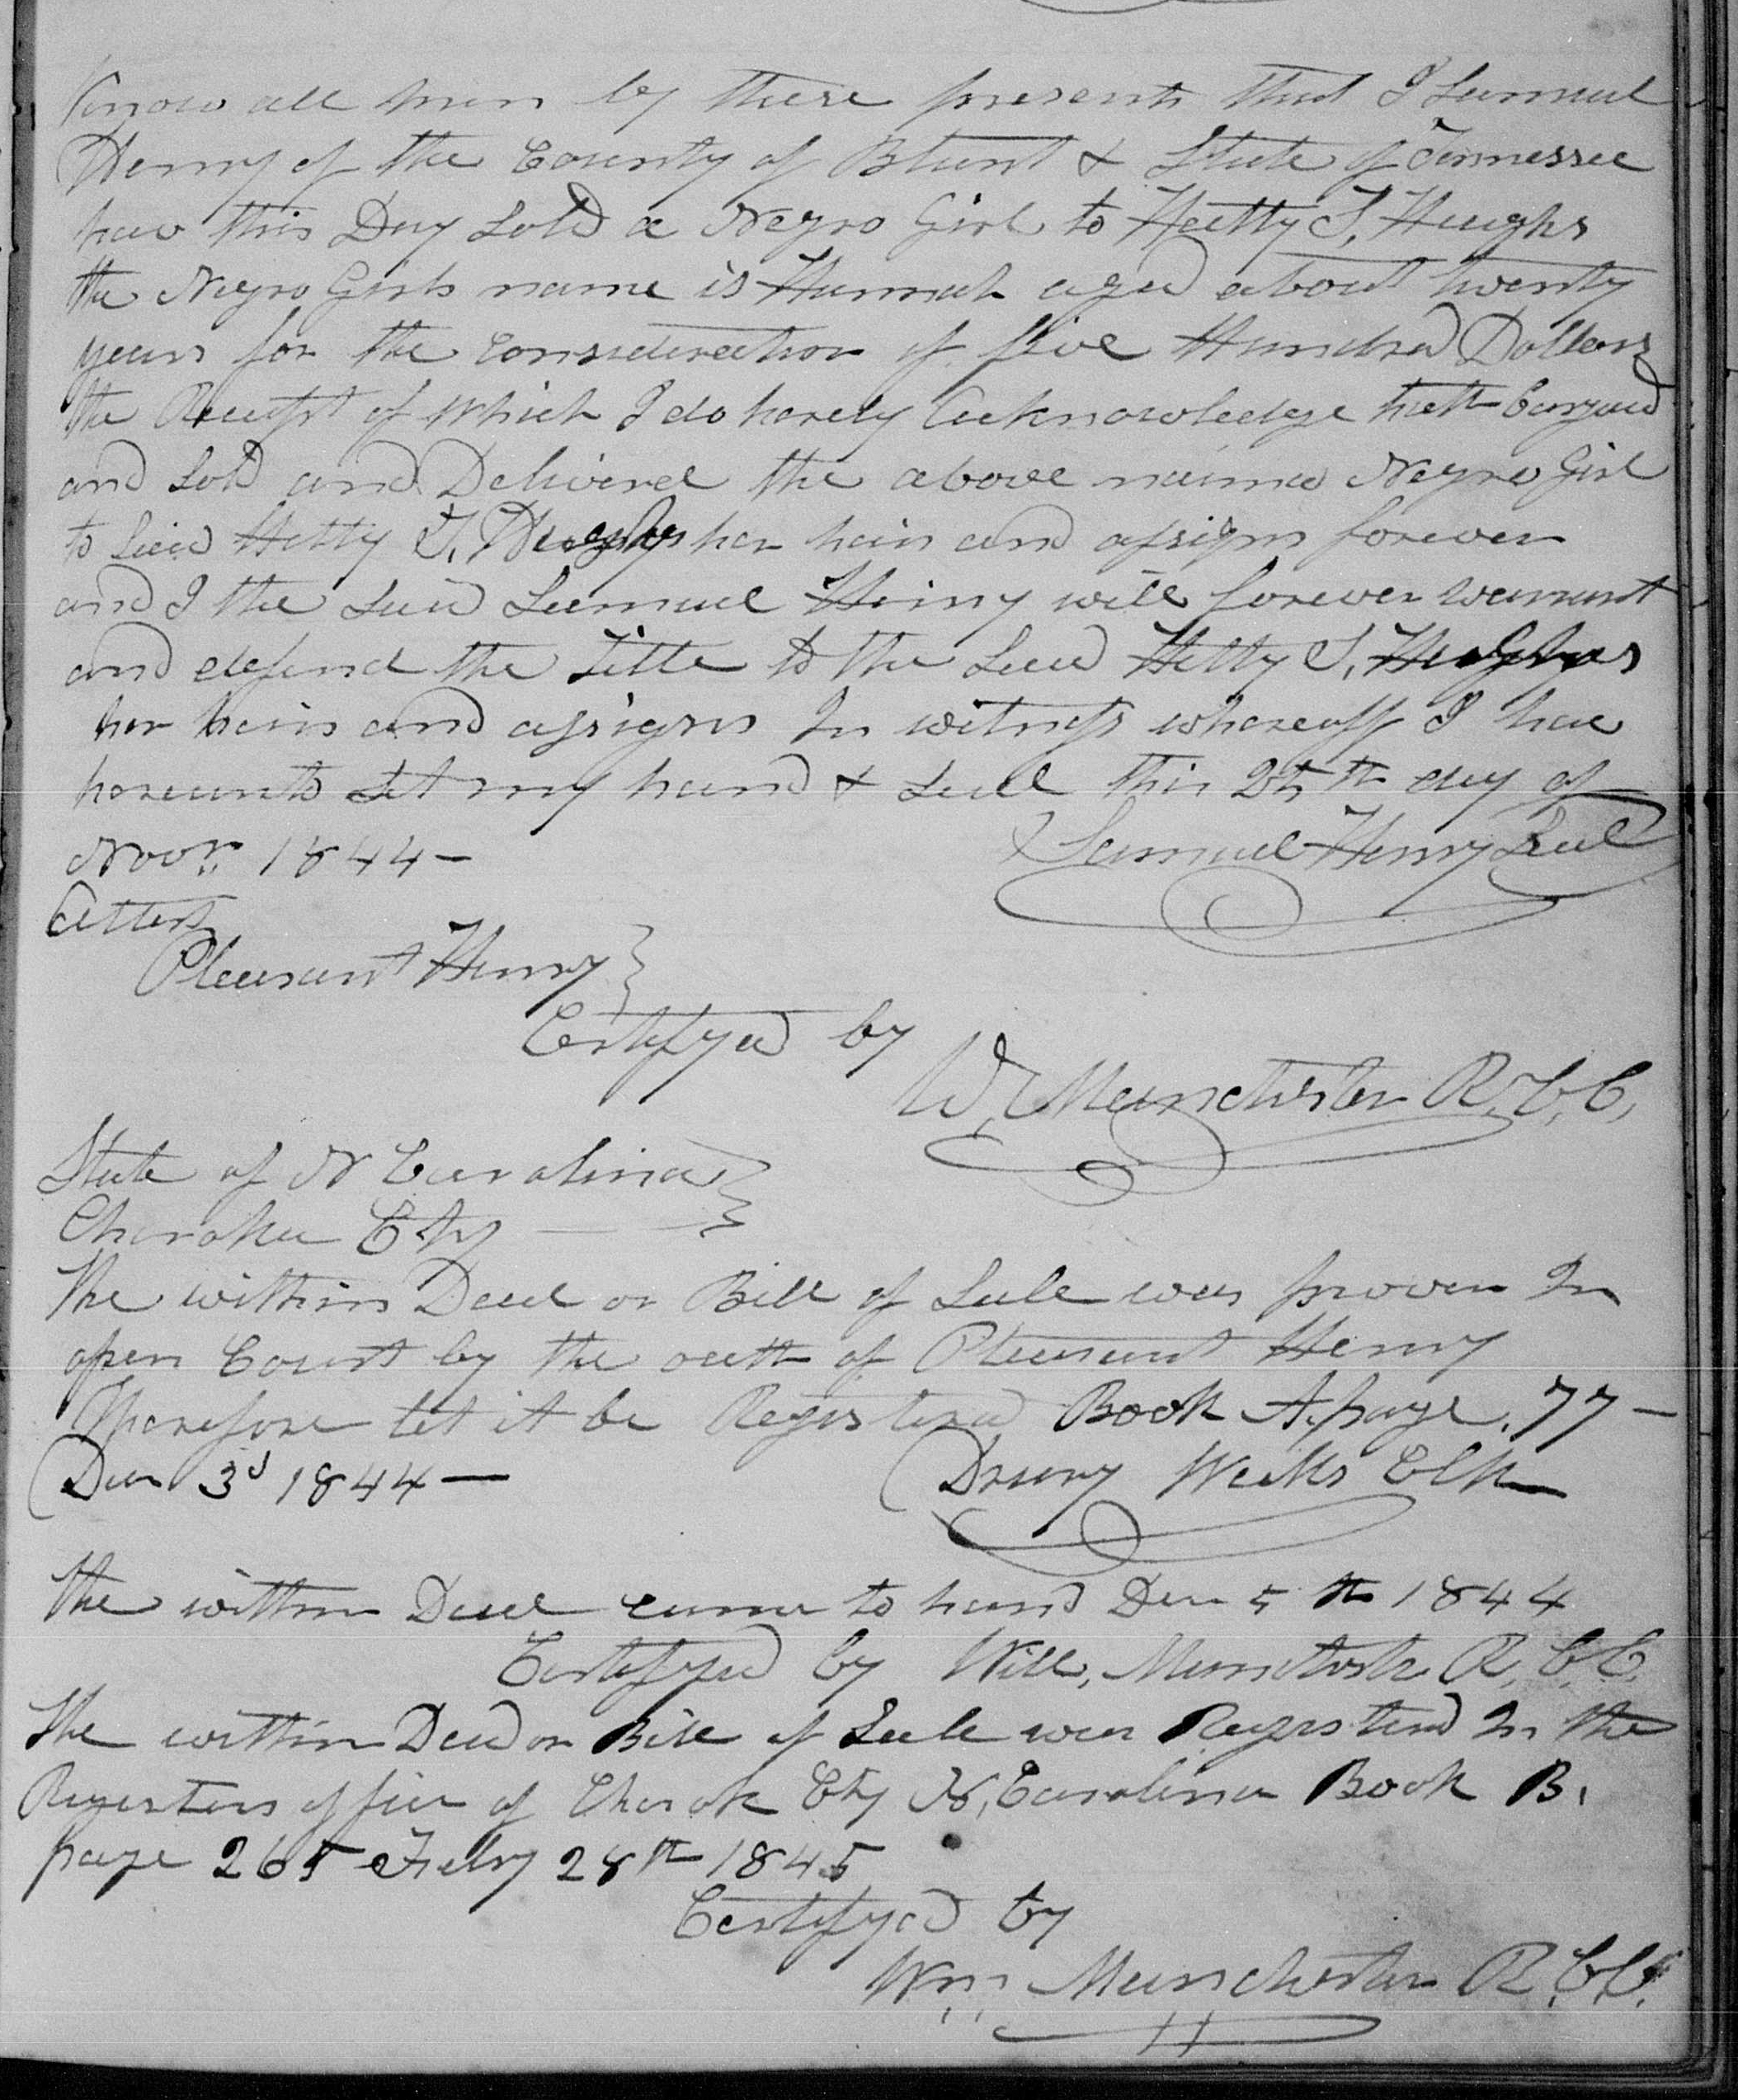 Know all men by these presents that I Samuel
Henry of the County of Blunt & State of Tennessee
hav this Day Sold a Negro Girl to Hetty S. Hughs
the Negro Girls name is Hannah aged about twenty
years for the consideration of five Hundred Dollars
the Receipt of which I do herely Acknowledge hath bargaied
and Sold and Delivered the above named Negro Girl
to Said Hetty S. Hughes her heirs and assigns forever
and I the Said Samuel Henry will forever warrant
and defend the Title to the Said Hetty S. Hughes
her heirs and assigns In witness whereoff I have
hereunto Set my hand & Seal this 25th day of
Novr. 1844 - Samuel Henry Seal
Attest
Pleasant Henry
Certifyed by
W. Manchester R.C.C.
State of N Carolina
Cherokee Cty
The within Deed or Bill of Sale was proven In
open Court by the oath of Pleasant Henry
Therefore let it be Registered Book A. page. 77 -
Dec 3d 1844 - Drury Weeks Clk
The within Deed came to hand Dec 5th 1844
Certifyed by Will. Manchester R.C.C.
The within Deed or Bill of Sale was Registered In the
Registers office of Cherok Cty N. Carolina Book B.
page 265 Feby 28th 1845
Certifyed by
Wm. Manchester R.C.C.